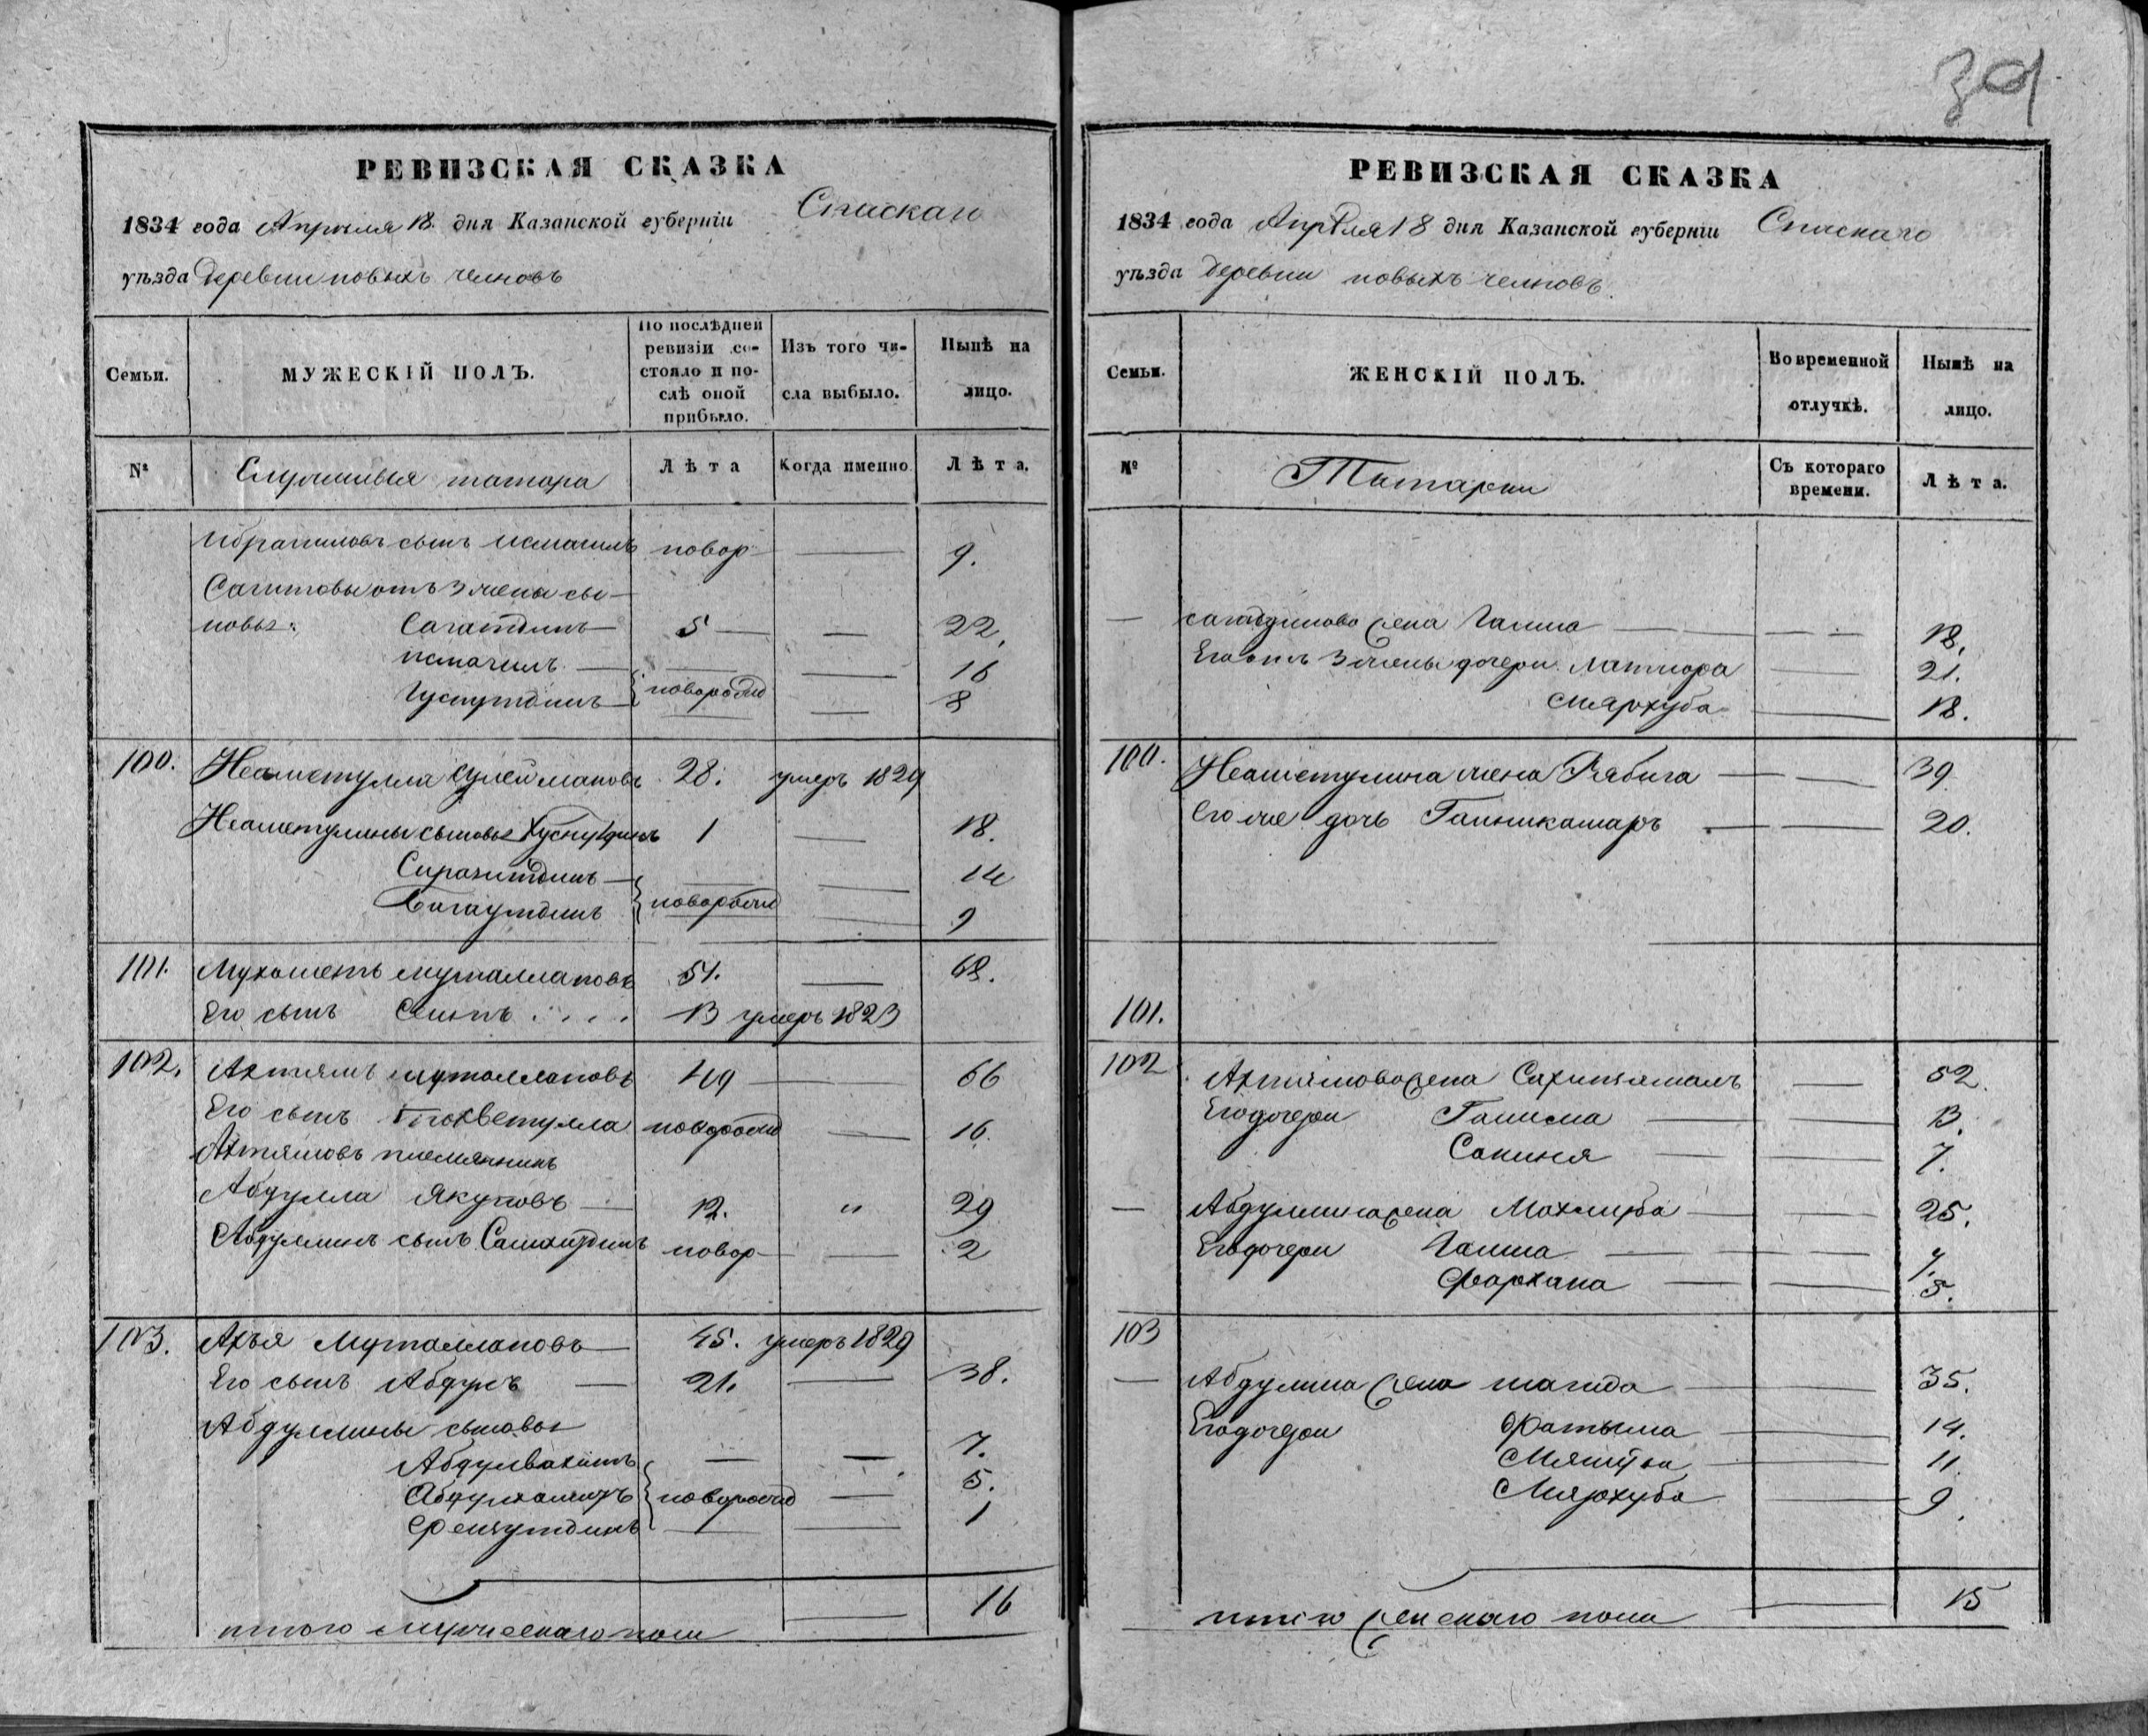 39
РЕВИЗСКАЯ СКАЗКА
1834 года Апреля 18 дня Казанской губерніи Спаскаго
уѣзда деревни новыхъ челновъ
Семьи.
МУЖЕСКІЙ ПОЛЪ.
По послѣдней ревизіи состояло и послѣ оной прибыло.
Изъ того числа выбыло.
Нынѣ на лицо.
№ Служилыя татара Лѣта Когда именно Лѣта.
Ибрагимовъ сынъ Исмагилъ новор 9.
Сагитовы отъ 3 жены сы-
новья: Сагатдинъ 5 22.
Исмагилъ 16
Хуснутдинъ новорожд 8
100. Неаметулла Сулеймановъ 28. умеръ 1829
Неаметулины сыновья Хуснутдинъ 1 18.
Сиразитдинъ 14
Багаутдинъ новорожд 9
101. Мухаметь муталлаповъ 51. 68.
Его сынъ Сеитъ 13 умеръ 1823
102. Ахтямъ муталлаповъ 49 66
Его сынъ новорожд 16.
Ахтямовъ племянникъ
Абдулла Якуповъ 12. " 29
Абдуллинъ сынъ новор 2
103. Ахъя Муталлаповъ 45. умеръ 1829
Его сынъ Абдулъ 21. 38.
Абдуллины сыновья
Абдулвахитъ 7.
новорожд 5.
1
итого мужескаго пола 16
РЕВИЗСКАЯ СКАЗКА
1834 года Апреля 18 дня Казанской губерніи Спаскаго
уѣзда деревни новыхъ челновъ.
Семьи.
ЖЕНСКІЙ ПОЛЪ.
Во временной отлучкѣ.
Нынѣ на лицо.
№ Татарки Съ котораго времени. Лѣта.
Сагадинова жена Галима 18.
Его отъ 3 жены дочери 21.
Мярхуба 18.
100. Неаметулина жена Рабига 39.
Его же дочь Гайникамаръ 20.
101.
102 Ахтямова жена Сахипзямалъ 52.
Его дочери Галима 13.
Сакиня 7.
Абдуллина жена 25.
Его дочери Галима 7.
Фархана 5.
103
Абдулина жена магида 35.
Его дочери Фатыма 14.
11.
Мярхуба 9.
итого женскаго пола 15